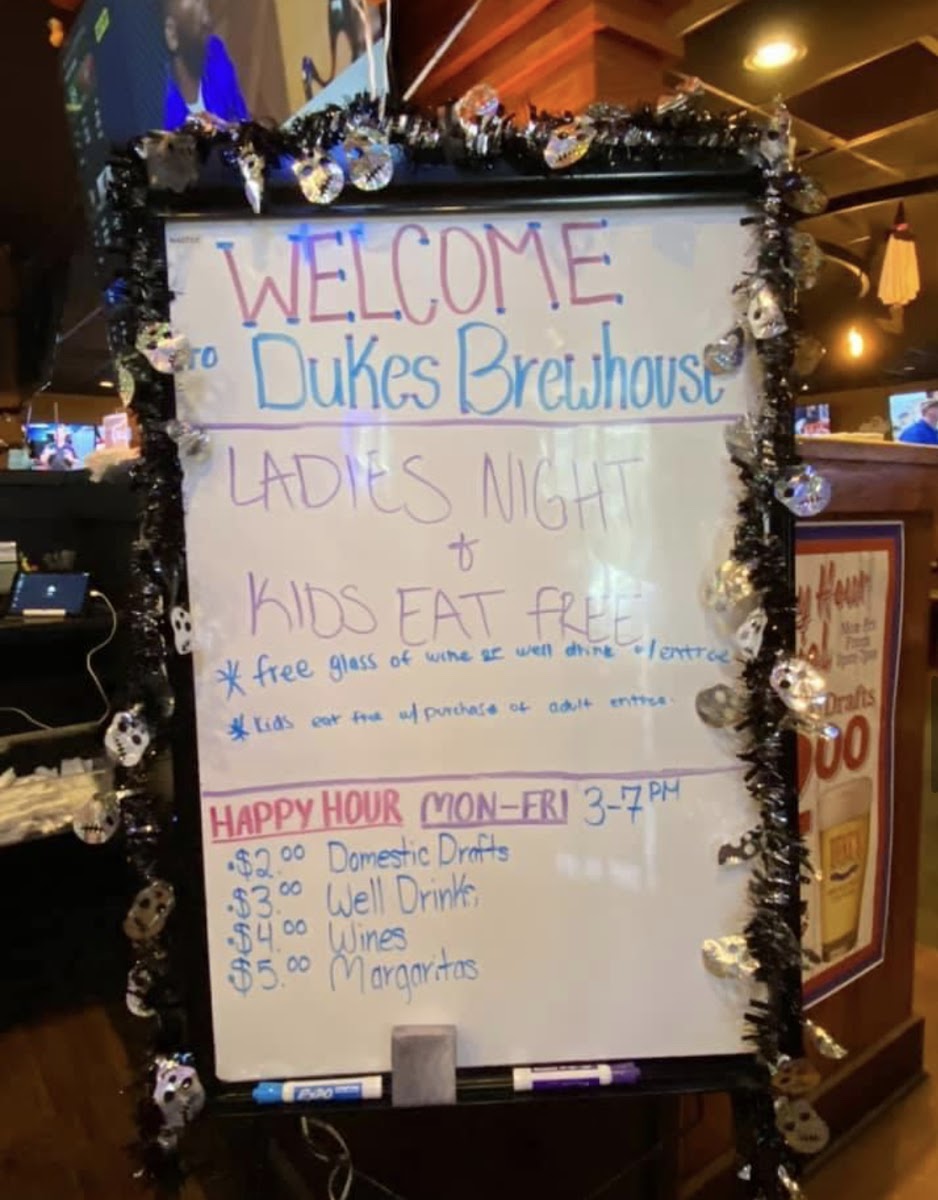 WELCOME
TO Dukes Brewhouse
LADIES NIGHT
+
KIDS EAT FREE
* free glass of wine or well drink w/entree
* Kids eat free w/ purchase of adult entree.
HAPPY HOUR MON-FRI 3-7PM
·$2.00 Domestic Drafts
·$3.00 Well Drinks
·$4.00 Wines
·$5.00 Margaritas
EXPO
y Hour
Mon-Fri
Drafts
00